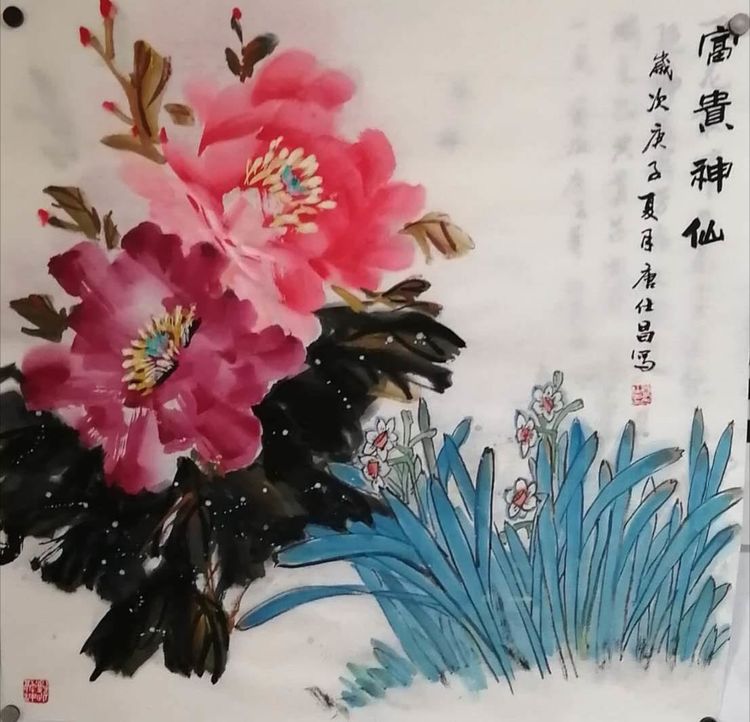 富貴神仙
歲次庚子夏月唐仕昌写